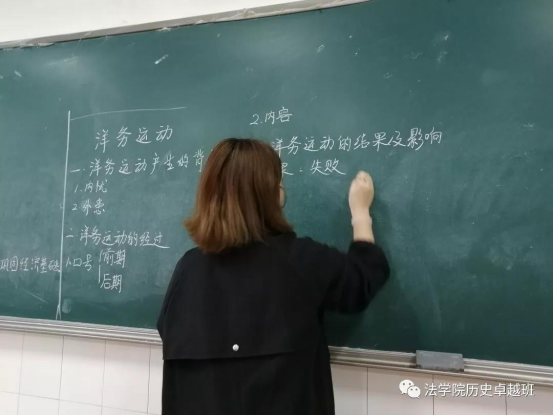 洋务运动
一.洋务运动产生的背
1.内忧
2.外患
二.洋务运动的经过
1.口号
前期
后期
2.内容
洋务运动的结果及影响
失败
法学院历史卓越班